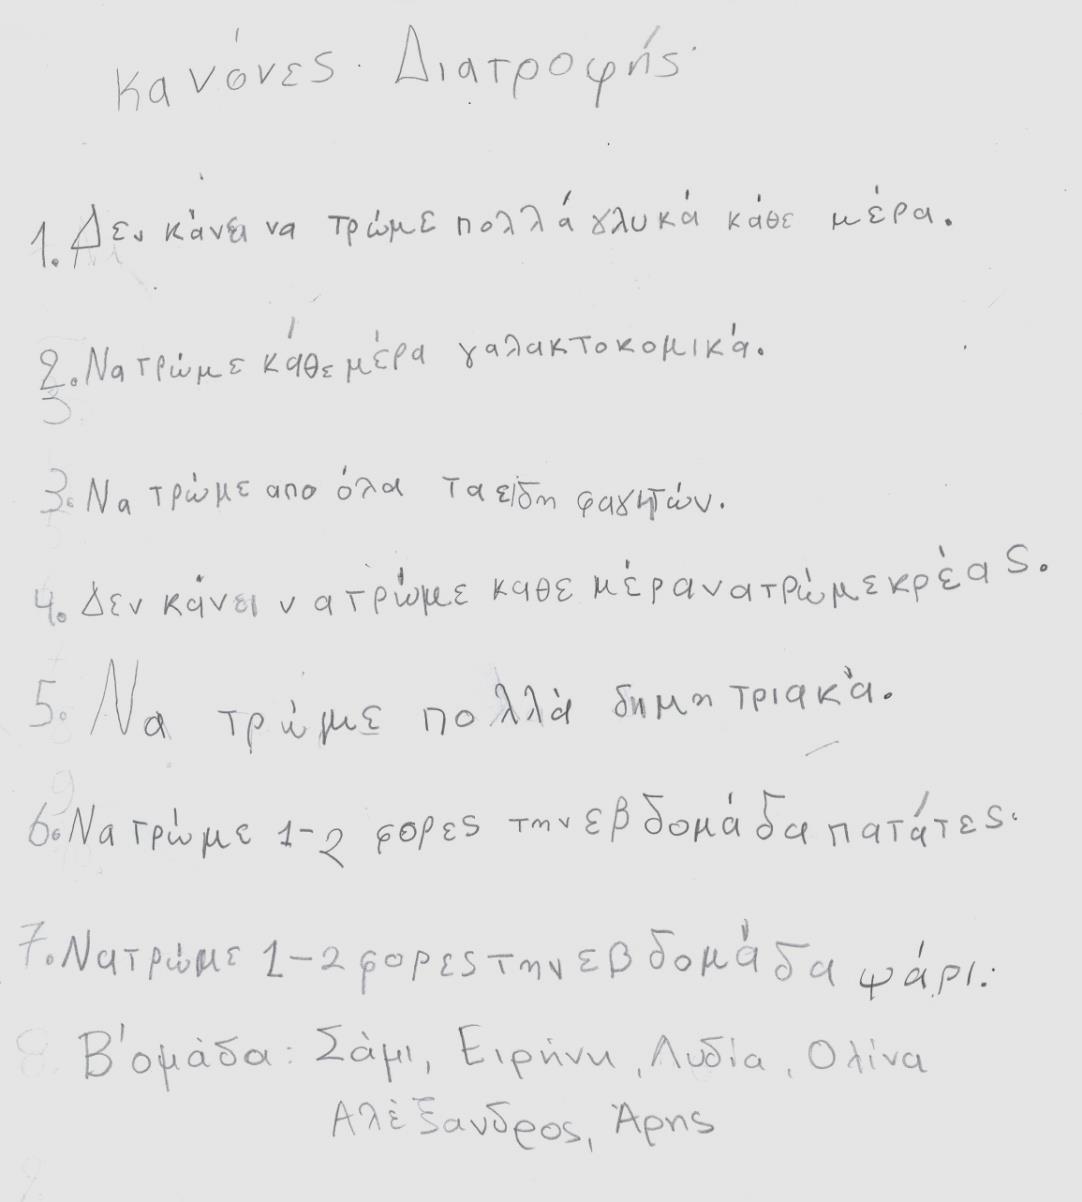 Κανόνες Διατροφής
1. Δεν κάνει να τρώμε πολλά γλυκά κάθε μέρα.
2. Να τρώμε κάθε μέρα γαλακτοκομικά.
3. Να τρώμε απο όλα τα είδη φαγητών.
4. Δεν κάνει να τρώμε καθε μέρα να τρώμε κρέας.
5. Να τρώμε πολλά δημητριακά.
6. Να τρώμε 1-2 φορες την εβδομάδα πατάτες.
7. Να τρώμε 1-2 φορες την εβδομάδα ψάρι.
Β' ομάδα: Σάμι, Ειρήνη, Λυδία, Ολίνα
Αλέξανδρος, Άρης